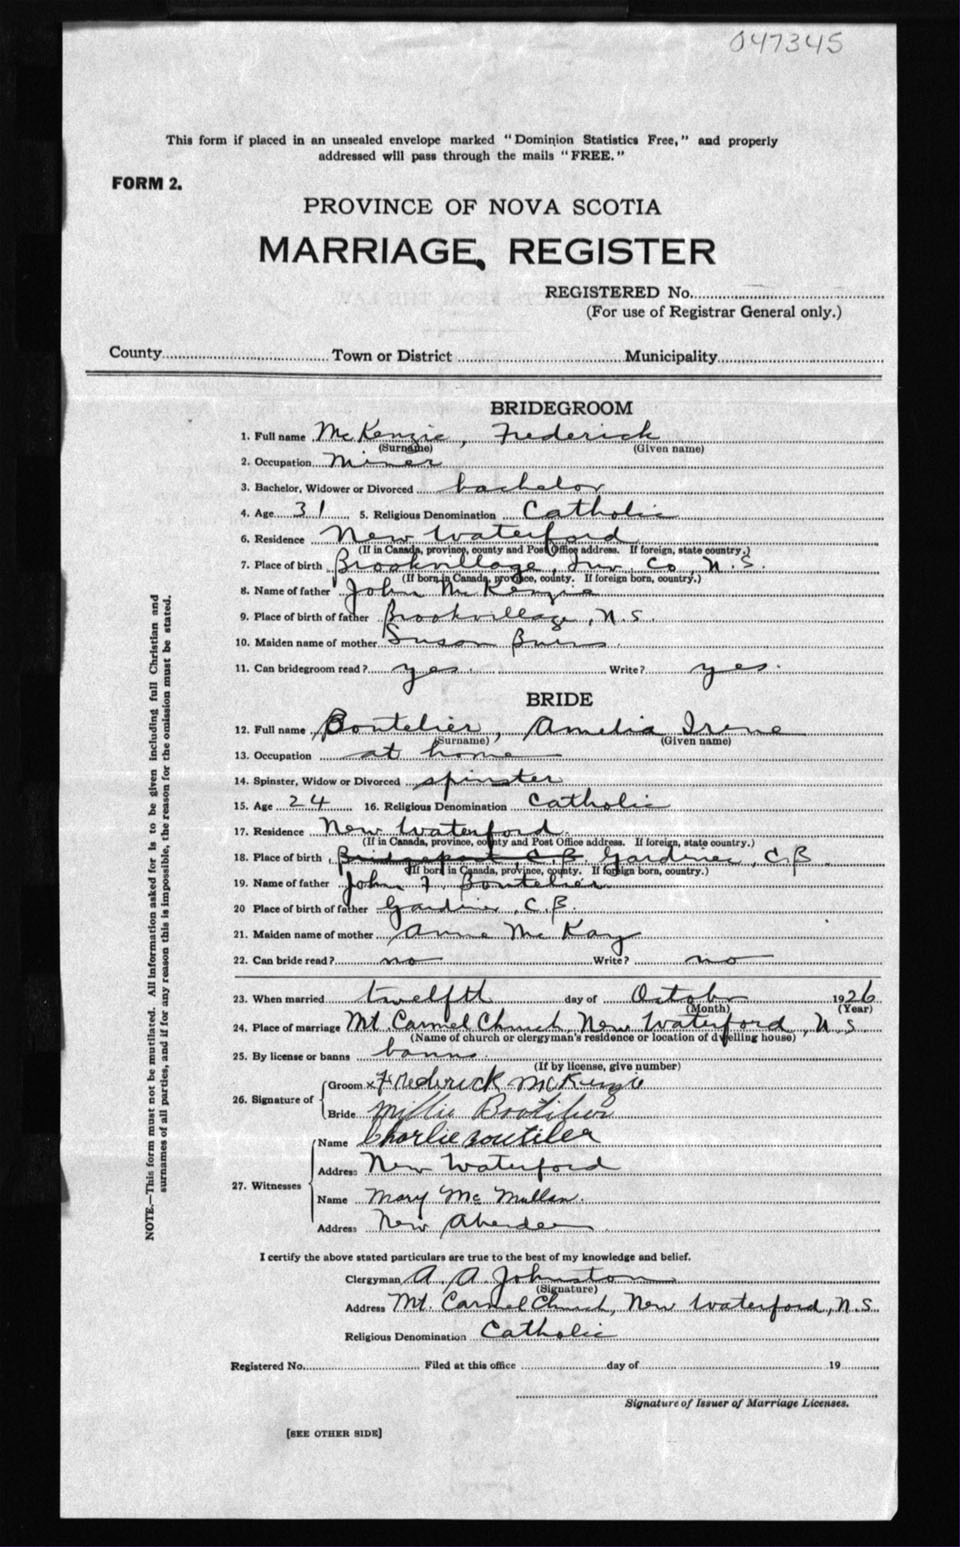 047345
This form if placed in an unsealed envelope marked "Dominion Statistics Free," and properly
addressed will pass through the mails "FREE."
FORM 2.
PROVINCE OF NOVA SCOTIA
MARRIAGE REGISTER
REGISTERED No.
(For use of Registrar General only.)
County Town or District Municipality
BRIDEGROOM
1. Full name McKenzie, Frederick
(Surname) (Given name)
2. Occupation miner
3. Bachelor, Widower or Divorced bachelor
4. Age 31 5. Religious Denomination Catholic
6. Residence New Waterford
(If in Canada, province, county and Post Office address. If foreign, state country.)
7. Place of birth Brookvillage, Inv. Co, N.S.
(If born in Canada, province, county. If foreign born, country.)
8. Name of father John McKenzie
9. Place of birth of father Brookvillage, N.S.
10. Maiden name of mother Susan
11. Can bridegroom read? yes Write? yes.
BRIDE
12. Full name Boutelier, Amelia Irene
(Surname) (Given name)
13. Occupation at home
14. Spinster, Widow or Divorced spinster
15. Age 24 16. Religious Denomination Catholic
17. Residence New Waterford
(If in Canada, province, county and Post Office address. If foreign, state country.)
18. Place of birth Bridgeport C.B Gardiner, C.B.
(If born in Canada, province, county. If foreign born, country.)
19. Name of father John F. Boutelier
20 Place of birth of father Gardiner, C.B.
21. Maiden name of mother Annie McKay
22. Can bride read? no Write? no
23. When married twelfth day of October 1926
(Month) (Year)
24. Place of marriage Mt. Carmel Church, New Waterford, N.S.
(Name of church or clergyman's residence or location of dwelling house)
25. By license or banns banns
(If by license, give number)
26. Signature of
Groom x Frederick McKenzie
Bride Millie Boutilier
27. Witnesses
Name Charlie Boutilier
Address New Waterford
Name Mary McMullan.
Address New Aberdeen
I certify the above stated particulars are true to the best of my knowledge and belief.
Clergyman A. A. Johnston
(Signature)
Address Mt. Carmel Church, New Waterford, N.S.
Religious Denomination Catholic
Registered No. Filed at this office day of 19
Signature of Issuer of Marriage Licenses.
[SEE OTHER SIDE]
NOTE.—This form must not be mutilated. All information asked for is to be given including full Christian and
surnames of all parties, and if for any reason this is impossible, the reason for the omission must be stated.